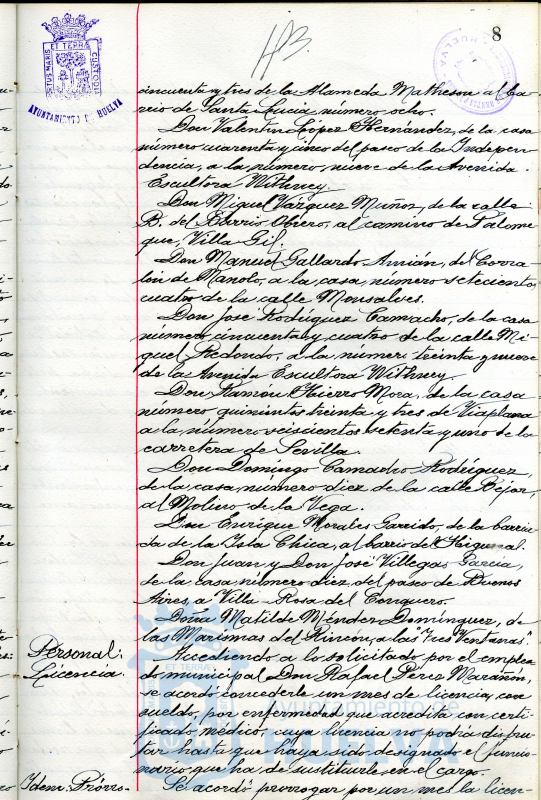 8
PORTUS MARIS ET TERRÆ CUSTODIA
AYUNTAMIENTO DE HUELVA
HUELVA
cincuenta y tres de la Alameda Matheson al ba-
rrio de Santa Lucía, número ocho.
Don Valentín López Hernández, de la casa
número cuarenta y cinco del paseo de la Indepen-
dencia, a la número nueve de la Avenida
Escultora Withney.
Don Miguel Vázquez Muñoz, de la calle
B. del Barrio Obrero, al camino de Palome
que, Villa Gil.
Don Manuel Gallardo Amián, del Corra-
lón de Manolo, a la casa número setecientos
cuatro de la calle Monsalves.
Don José Rodríguez Camacho, de la casa
número cincuenta y cuatro de la calle Mi-
guel Redondo, a la número treinta y nueve
de la Avenida Escultora Withney.
Don Ramón Hierro Mora, de la casa
número quinientos treinta y tres de Viaplana
a la número seiscientos setenta y uno de la
carretera de Sevilla.
Don Domingo Camacho Rodríguez,
de la casa número diez de la calle Béjar,
al Molino de la Vega.
Don Enrique Morales Garrido, de la barria
da de la Isla Chica, al barrio del Higueral.
Don Juan y Don José Villegas García,
de la casa número diez del paseo de Buenos
Aires, a Villa-Rosa del Conquero.
Doña Matilde Méndez Domínguez, de
las Marismas del Rincón, a las "Tres Ventanas".
Personal:
Licencia.
Accediendo a lo solicitado por el emplea
do municipal Don Rafael Pérez Marañón,
se acordó concederle un mes de licencia, con
sueldo, por enfermedad que acredita con certi-
ficado médico, cuya licencia no podrá disfru-
tar hasta que haya sido designado el funcio-
nario que ha de sustituirle en el cargo.
Idem: Prórro-
Se acordó prorrogar por un mes la licen-
ET TERRÆ
Ayuntamiento de
HUELVA